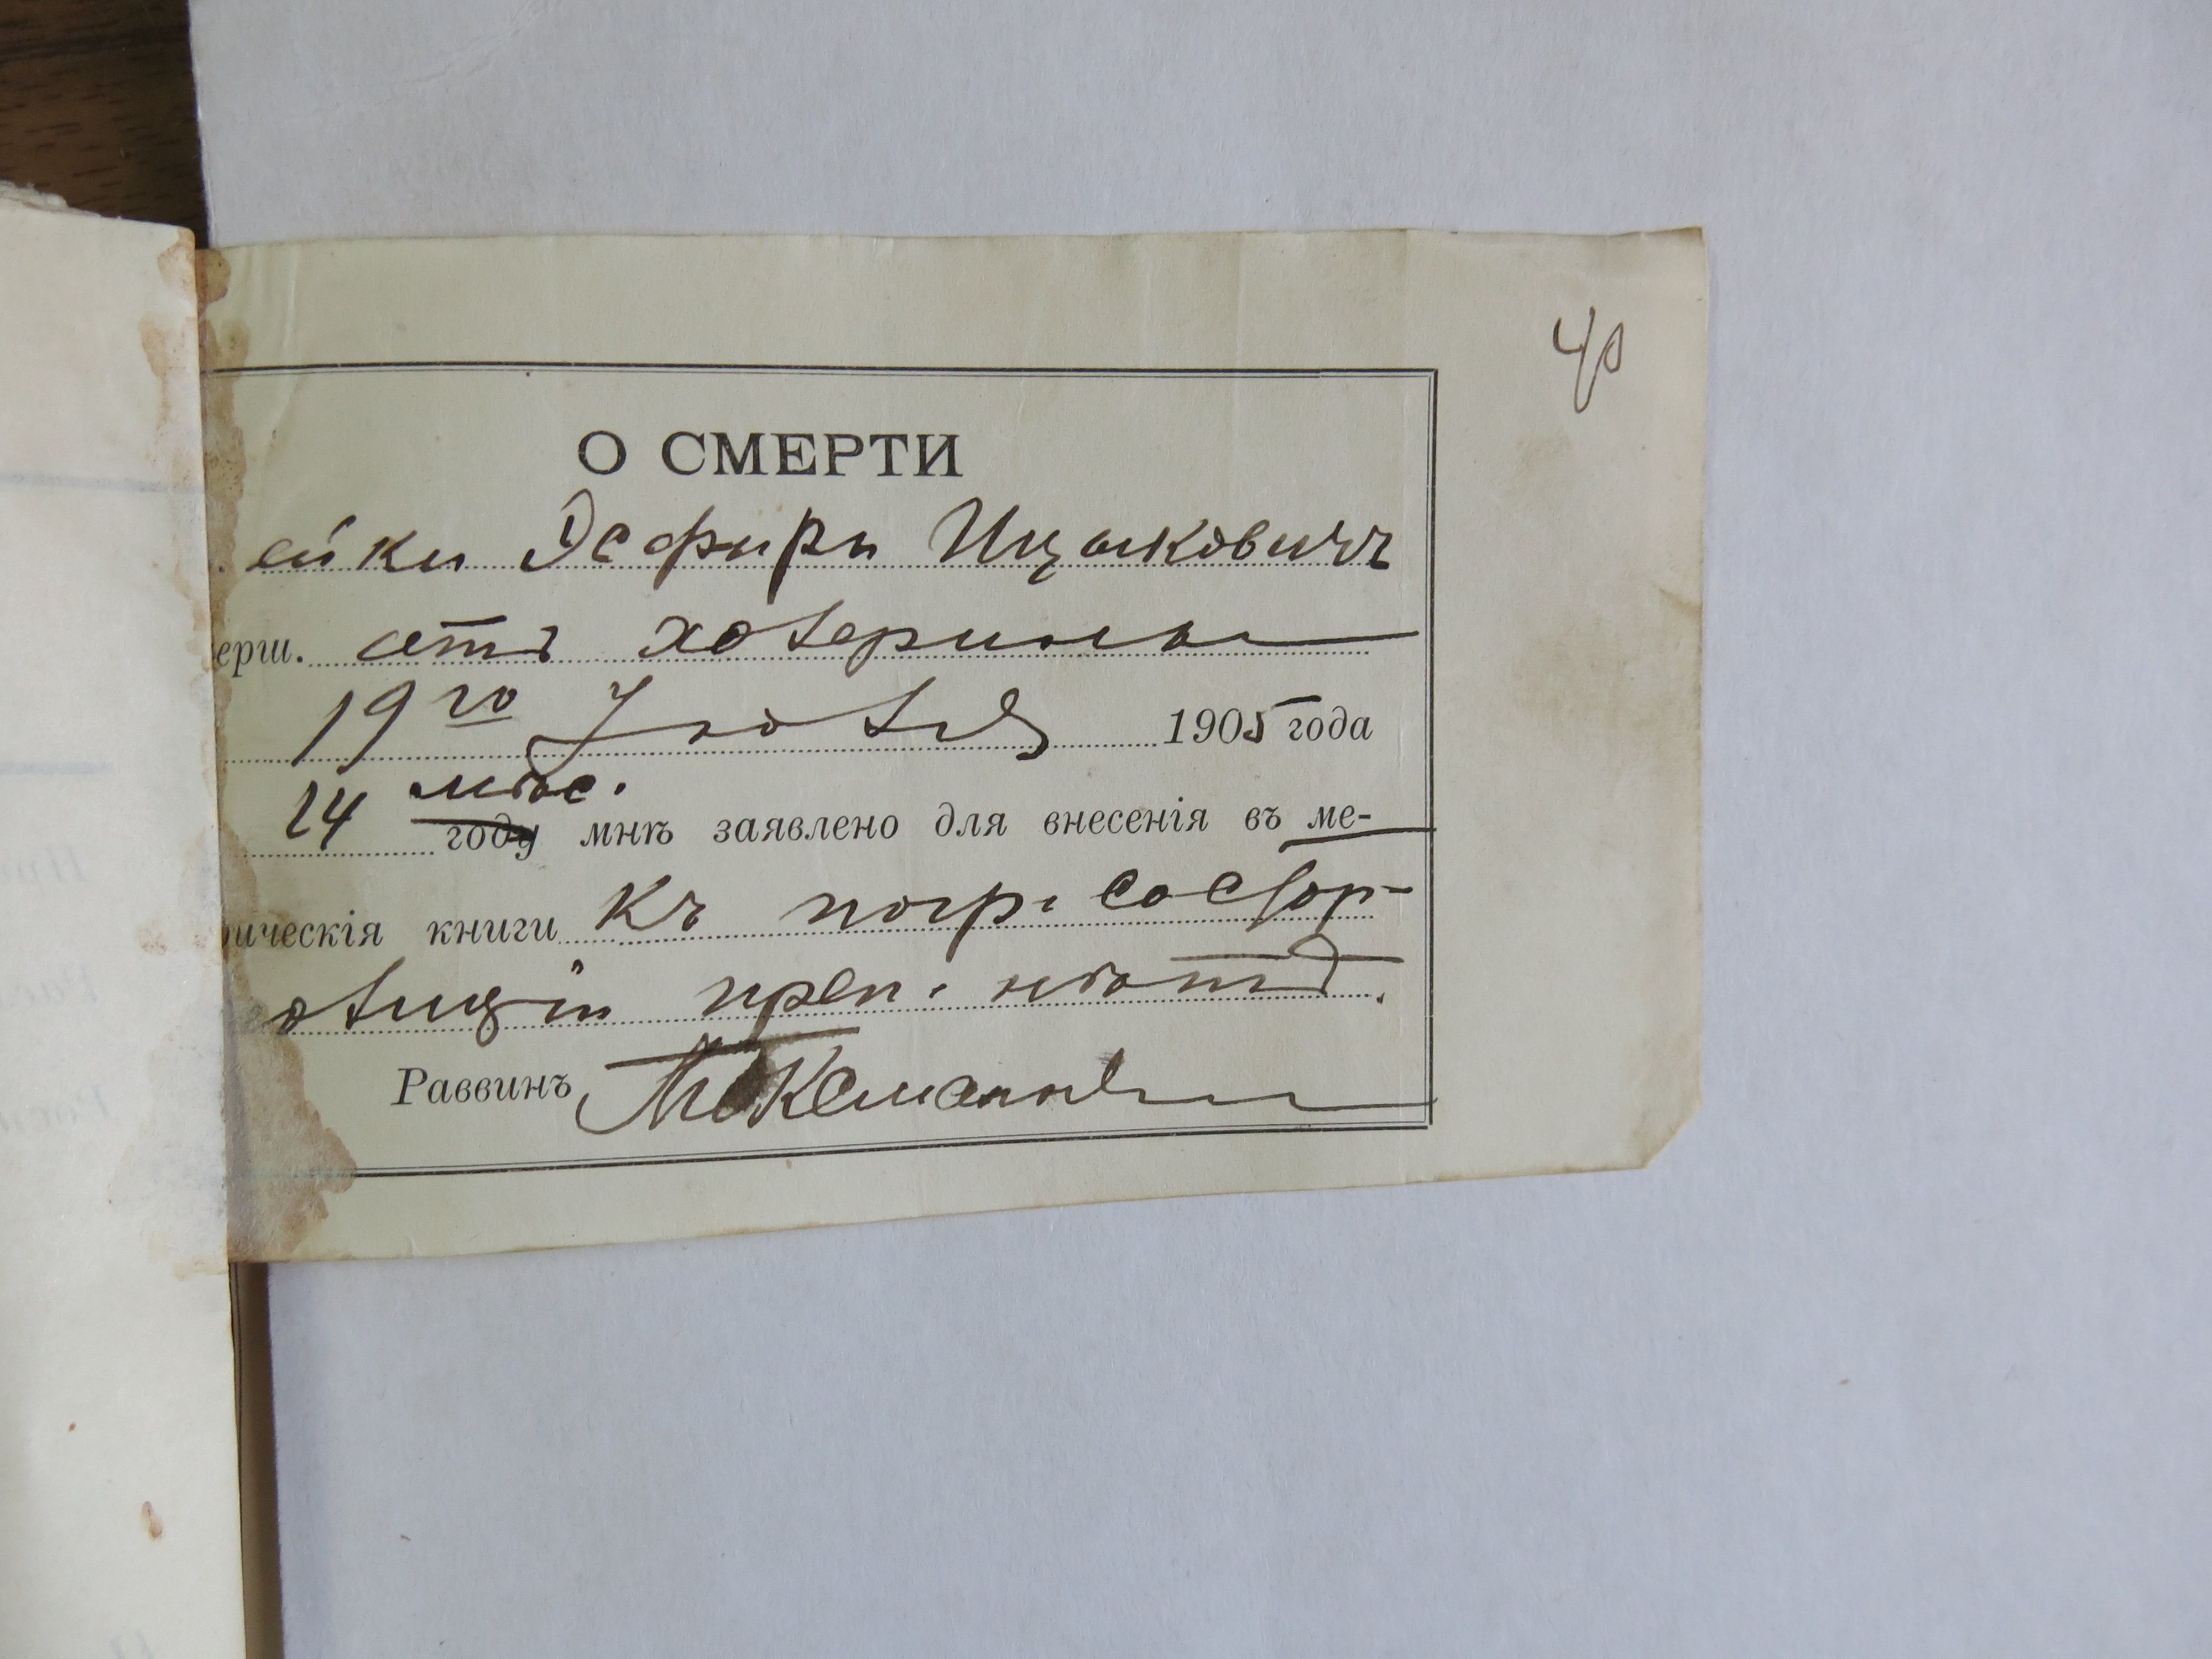 40
О СМЕРТИ
ейки Эсфирь Ицыковичъ
ерш. отъ холерины
19го Іюля 1905 года
14 мѣс.
году мнѣ заявлено для внесенія въ ме-
рическія книги Къ погр. со стор-
полиціи преп. нѣтъ.
Раввинъ